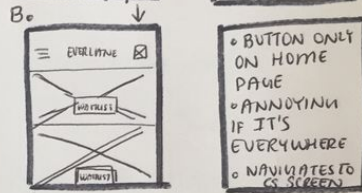 B.
EVERLANE
WORKLIST
WORKLIST
• BUTTON ONLY
ON HOME
PAGE
• ANNOYING
IF IT'S
EVERYWHERE
• NAVIGATES TO
CS SCREEN